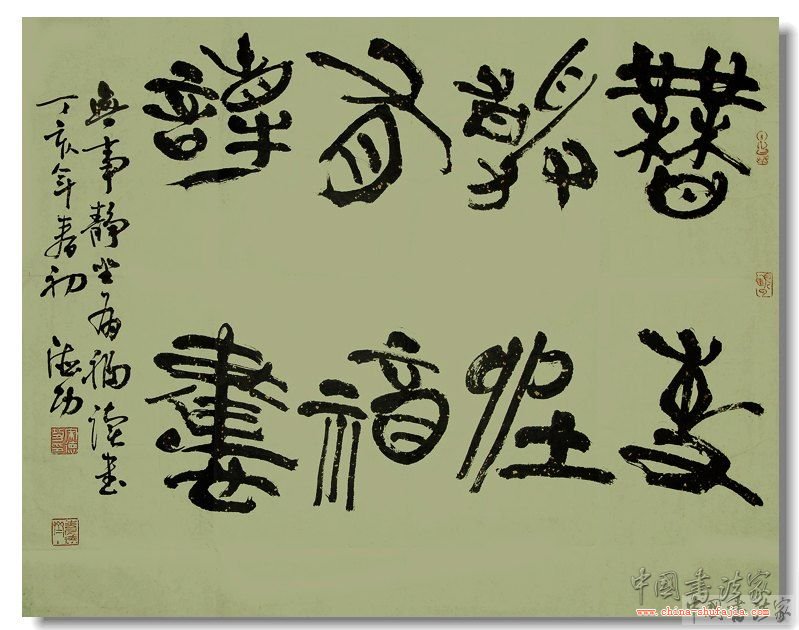 無事
靜坐
有福
讀書
無事靜坐有福讀書
丁亥年春初 德功
中國書法家
www.china-shufajia.com